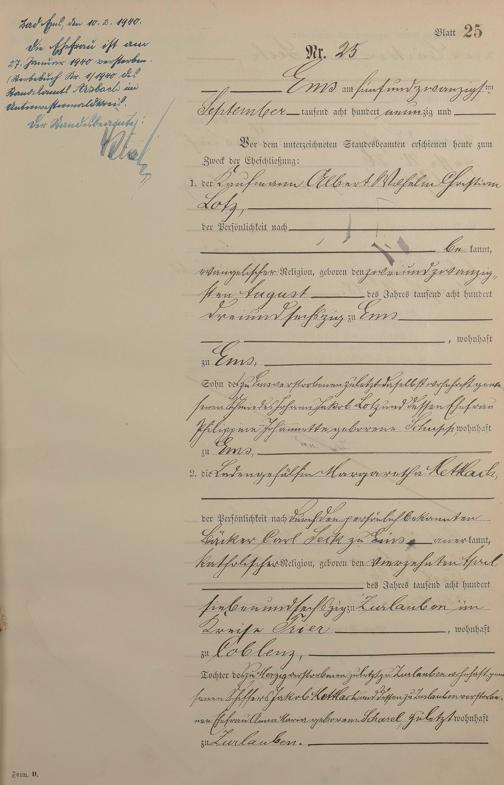 Bad Ems, den 10.2.1940.
Die Ehefrau ist am
27. Januar 1940 verstorben.
(Sterbebuch Nr. 1/1940 des
Standesamts Arzbach im
Unterwesterwaldkreis.
Der Standesbeamte:
Blatt 25
Nr. 25
Ems am fünfundzwanzigsten
September tausend acht hundert neunzig und
Vor dem unterzeichneten Standesbeamten erschienen heute zum
Zweck der Eheschließung:
1. der Kaufmann Albert Wilhelm Christian
Lotz,
der Persönlichkeit nach
be kannt,
evangelischer Religion, geboren den zweiundzwanzig-
sten August des Jahres tausend acht hundert
dreiundsechszig zu Ems
, wohnhaft
zu Ems,
Sohn des zu Ems verstorbenen zuletzt daselbst wohnhaft gewe-
senen Johann Jakob Lotz und dessen Ehefrau
Philippine Johannette geborene wohnhaft
zu Ems,
2. die Ladengehülfin Margaretha Kettkach,
der Persönlichkeit nach durch den persönlich bekannten
Bäcker Carl zu Ems anerkannt,
katholischer Religion, geboren den vierzehnten April
des Jahres tausend acht hundert
siebenundsechszig zu Zurlauben im
Kreise Trier, wohnhaft
zu Coblenz,
Tochter des zu verstorbenen zuletzt zu Zurlauben wohnhaft gewe-
senen Schiffers Jakob Kettkach und dessen zu Zurlauben verstorbe-
nen Ehefrau Anna Maria geborene Scharel, zuletzt wohnhaft
zu Zurlauben.
Form. B.